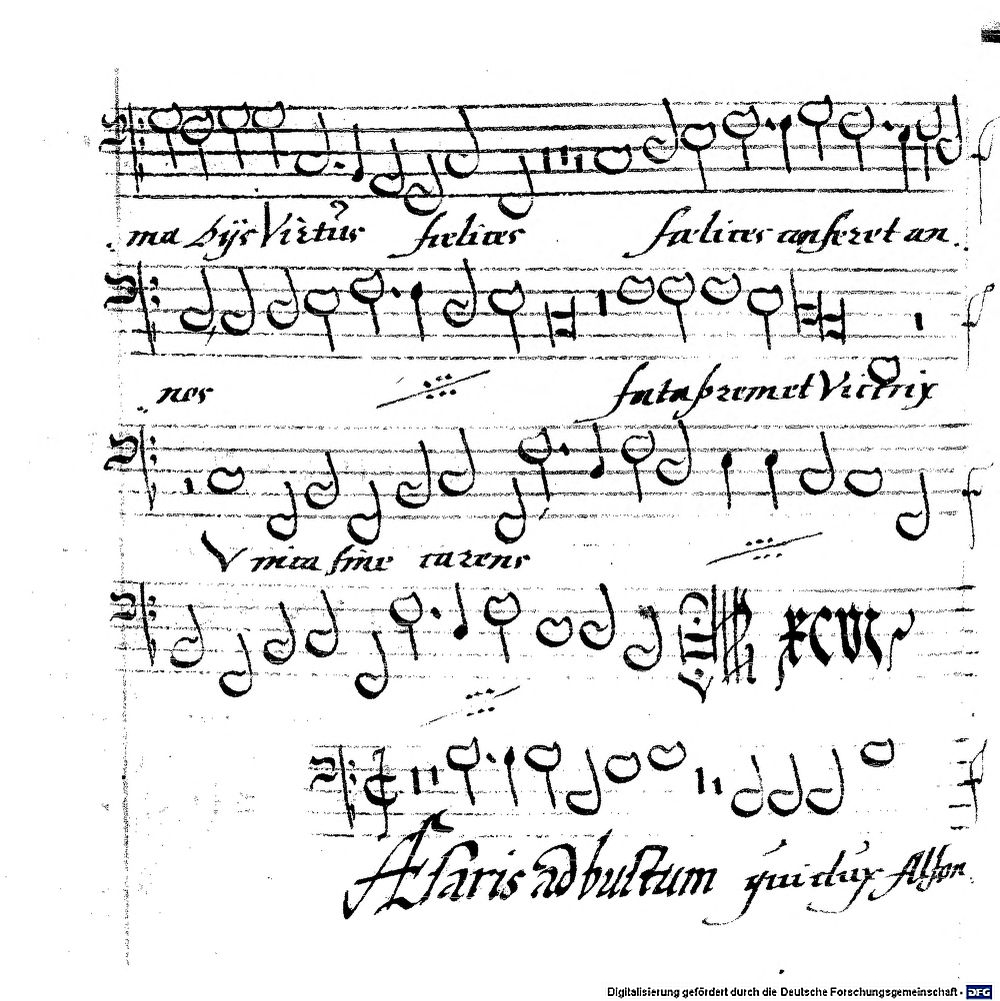 ma bijs Virtus fœlices fœlices conferet an
nos fata premet Victrix
Vnica fine carens
xcvi
Æsaris ad bustum qui dux Alfon
Digitalisierung gefördert durch die Deutsche Forschungsgemeinschaft - DFG